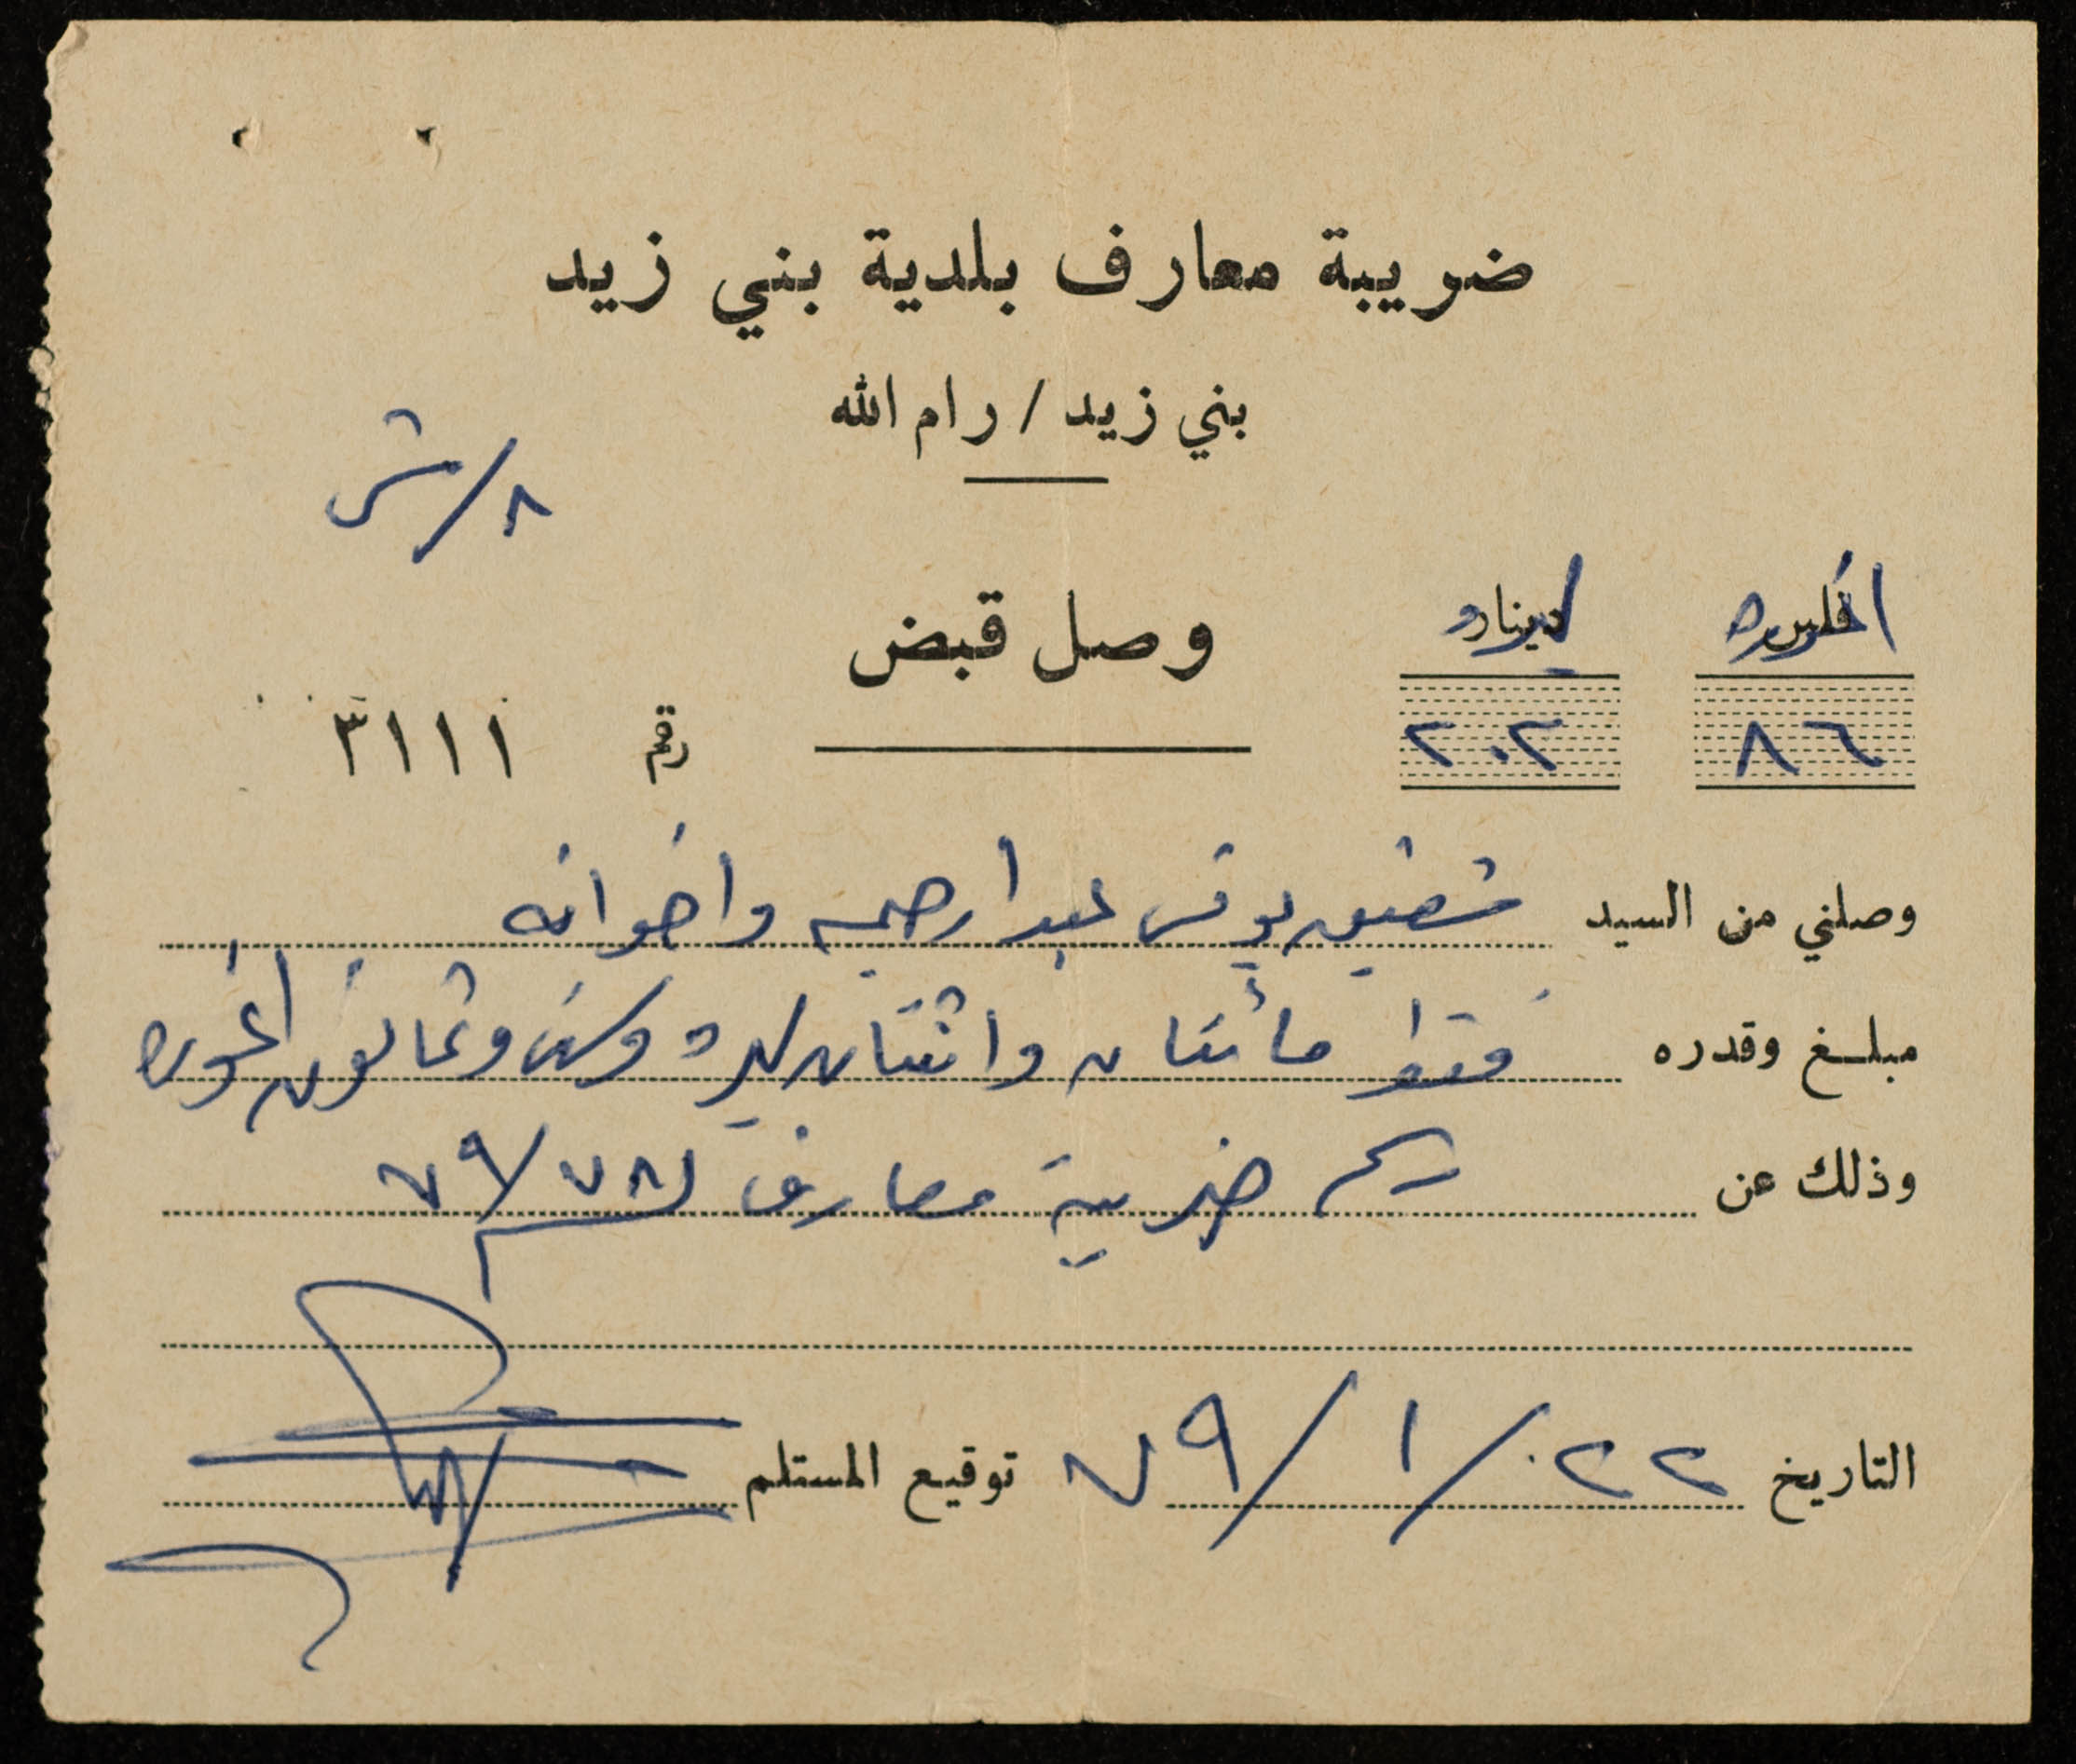 ضريبة معارف بلدية بني زيد
بني زيد / رام الله
٨/ش
اغوره ليره
فلس دينار
وصل قبض
٨٦ ٢٠٢
رقم ٣١١١
وصلني من السيد شفيق يونس عبدالرحيم واخوانه
مبلغ وقدره فقط مائتان واثنتان ليره وست وثمانون اغوره
وذلك عن رسم ضريبة معارف ٧٩/٧٨
التاريخ ٢٢ / ١ / ٧٩ توقيع المستلم